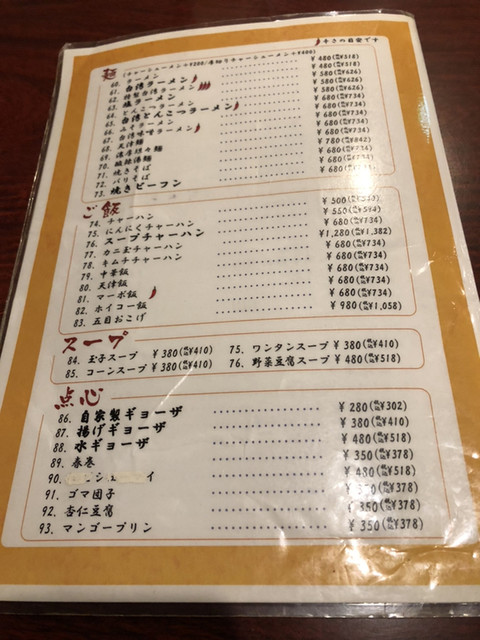 辛さの目安です
麺 (チャーシューメン+¥200/厚切りチャーシューメン+¥400)
60. ラーメン ¥480(税込¥518)
61. 台湾ラーメン ¥480(税込¥518)
62. 特製台湾ラーメン ¥580(税込¥626)
63. 塩ラーメン ¥580(税込¥626)
64. とんこつラーメン ¥580(税込¥626)
65. 台湾とんこつラーメン ¥680(税込¥734)
66. みそラーメン ¥680(税込¥734)
67. 台湾味噌ラーメン ¥680(税込¥734)
68. 天津麺 ¥680(税込¥734)
69. 濃厚坦々麺 ¥680(税込¥734)
70. 酸辣湯麺 ¥780(税込¥842)
71. 焼きそば ¥680(税込¥734)
72. バリそば ¥680(税込¥734)
73. 焼きビーフン ¥680(税込¥734)
ご飯
74. チャーハン ¥500(税込¥540)
75. にんにくチャーハン ¥550(税込¥594)
76. スープチャーハン ¥680(税込¥734)
77. カニ玉チャーハン ¥1,280(税込¥1,382)
78. キムチチャーハン ¥680(税込¥734)
79. 中華飯 ¥680(税込¥734)
80. 天津飯 ¥680(税込¥734)
81. マーボ飯 ¥680(税込¥734)
82. ホイコー飯 ¥680(税込¥734)
83. 五目おこげ ¥980(税込¥1,058)
スープ
84. 玉子スープ ¥380(税込¥410) 75. ワンタンスープ ¥380(税込¥410)
85. コーンスープ ¥380(税込¥410) 76. 野菜豆腐スープ ¥480(税込¥518)
点心
86. 自家製ギョーザ ¥280(税込¥302)
87. 揚げギョーザ ¥380(税込¥410)
88. 水ギョーザ ¥480(税込¥518)
89. 春巻 ¥350(税込¥378)
90. シュ イ ¥480(税込¥518)
91. ゴマ団子 ¥350(税込¥378)
92. 杏仁豆腐 ¥350(税込¥378)
93. マンゴープリン ¥350(税込¥378)